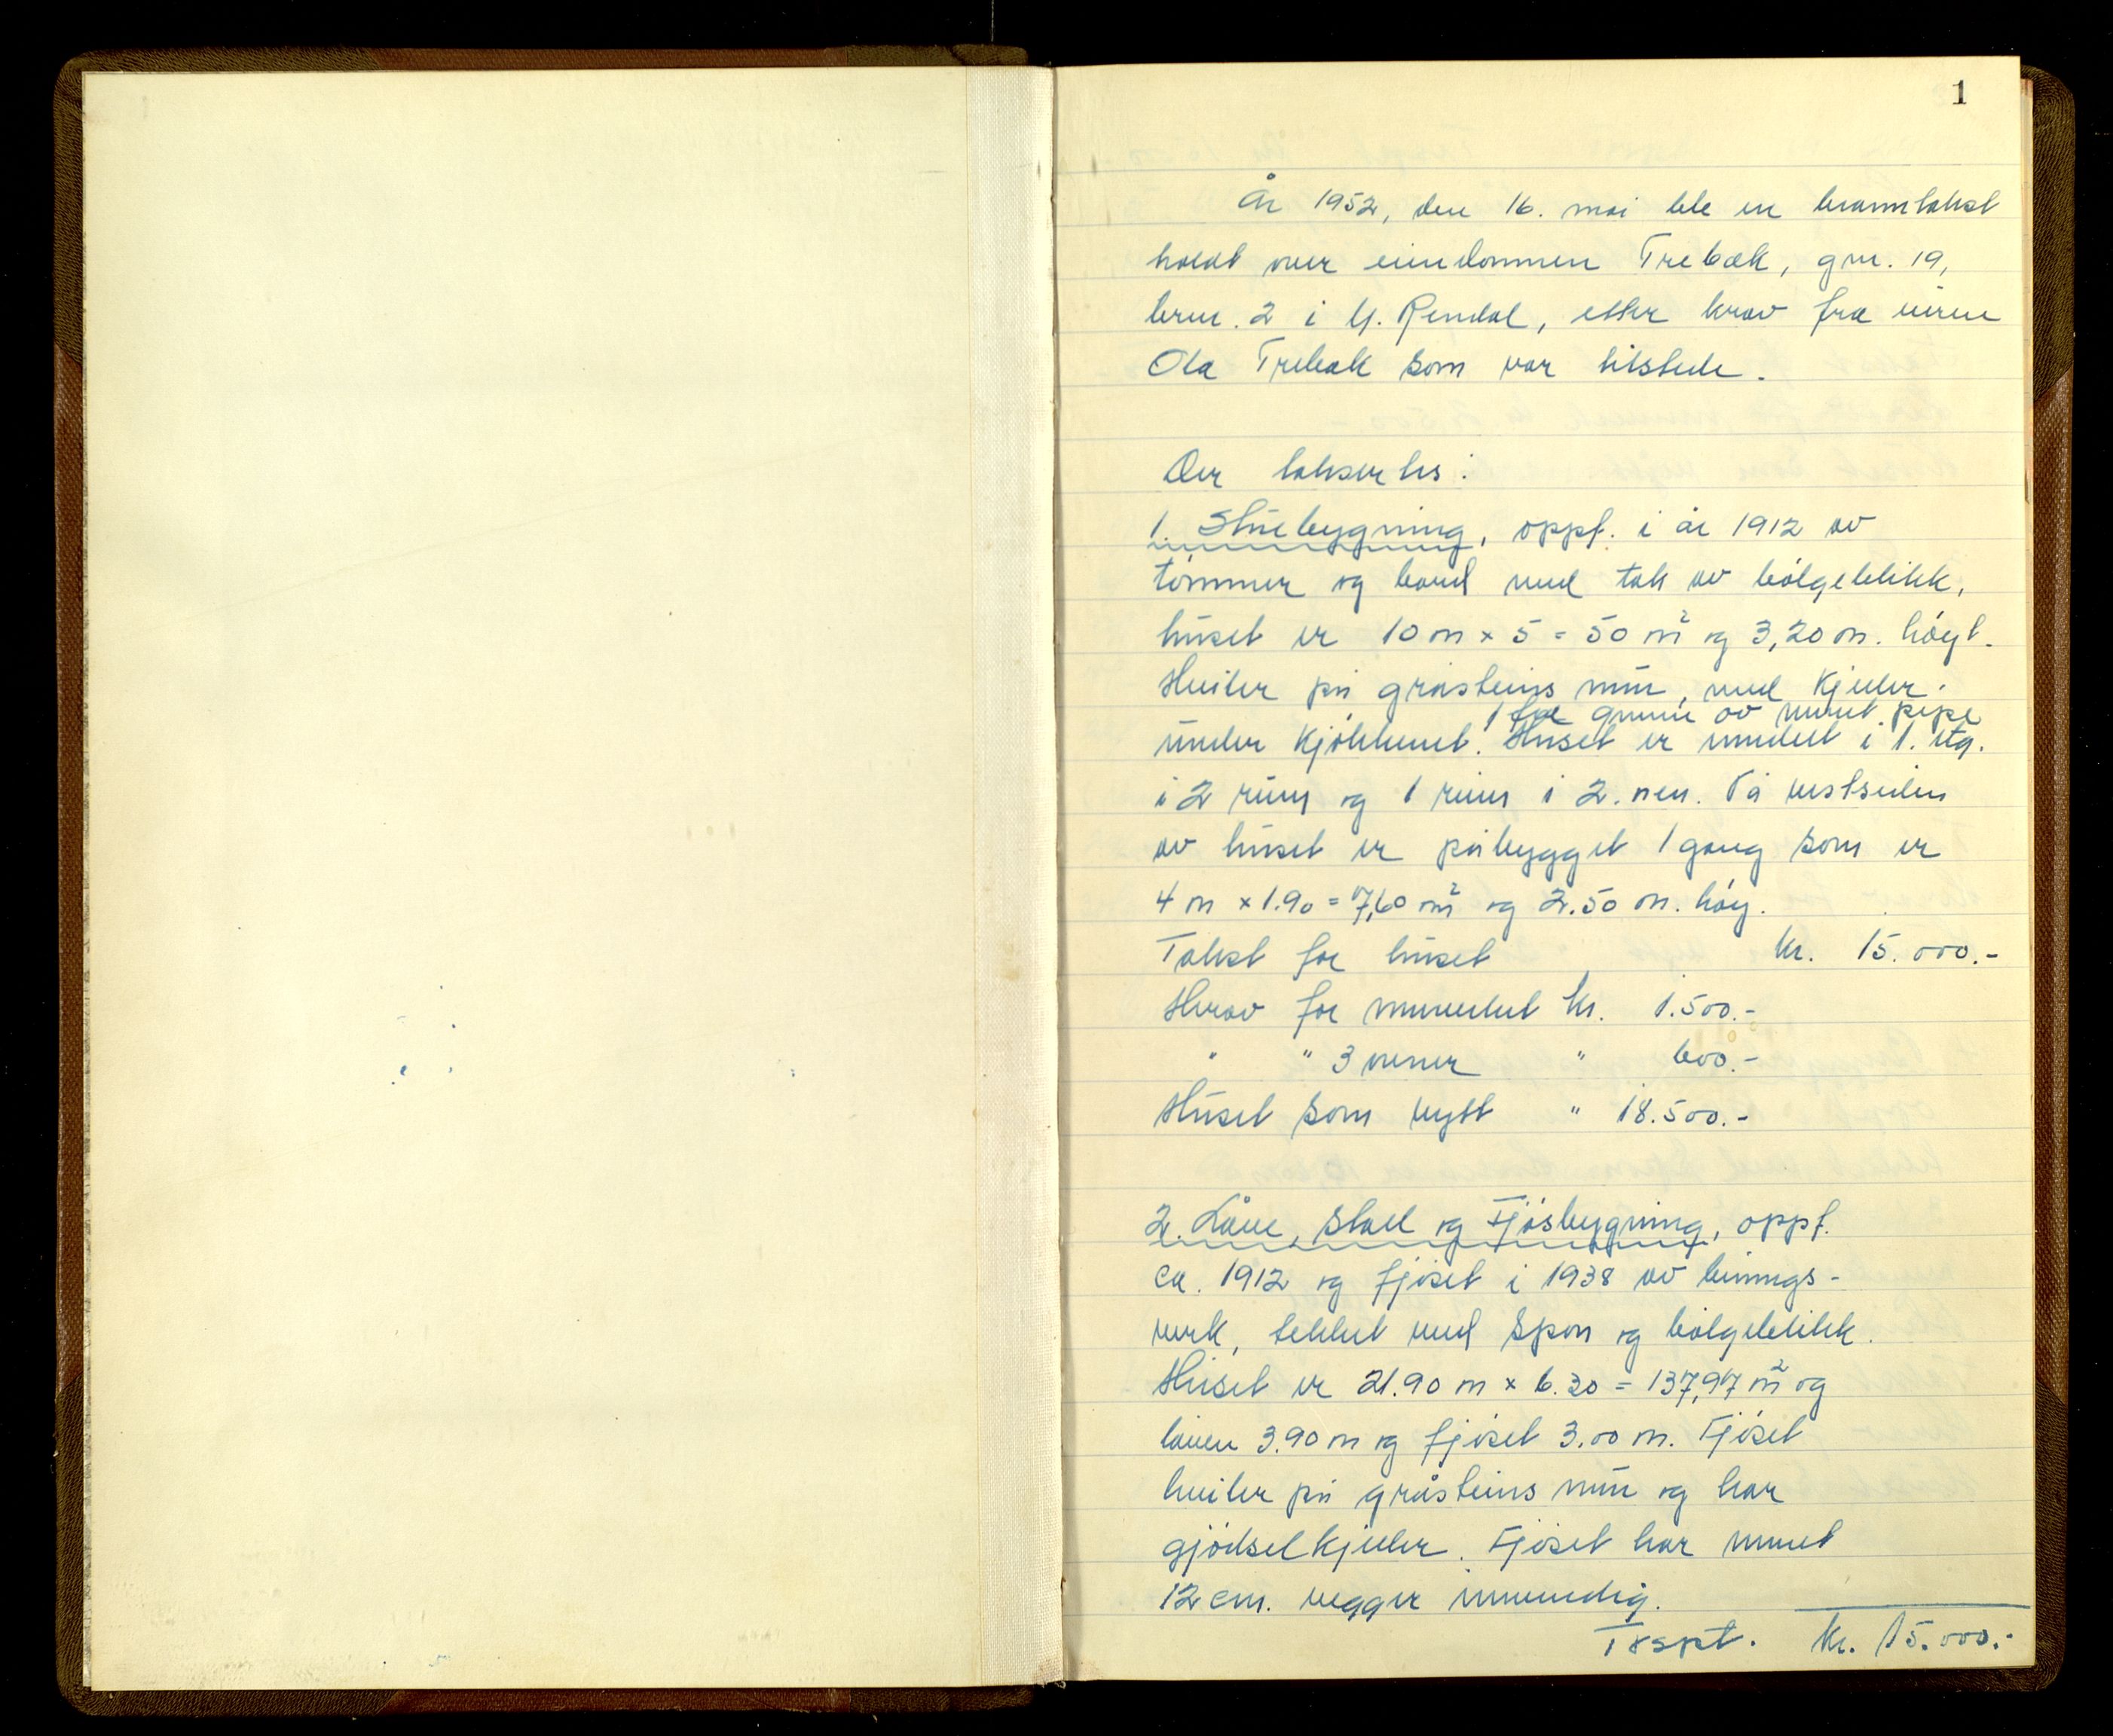 1
År 1952, den 16. mai ble en branntakst
holdt over eiendommen Trebæk, gnr. 19,
brnr. 2 i Y. Rendal, etter krav fra eieren
Ola Trebæk som var tilstede.
Der taksertes:
1. Stuebygning, oppf. i år 1912 av
tömmer og bord med tak av bölgeblikk,
huset er 10 m x 5 = 50 m² og 3,20 m. höyt.
Hviler på gråsteins mur, med kjeller
under kjökkenet. Huset er inndelt i 1. etg.
1 før av muret pipe
i 2 rum og 1 rum i 2.nen. På vestsiden
av huset er påbygget 1 gang som er
4 m x 1.90 = 7,60 m² og 2.50 m. höy.
Takst for huset kr. 15.000.-
Herav for murverket kr. 1.500.-
" " 3 ovner " 600.-
Huset som nytt " 18.500.-
2. Låve, stall og Fjösbygning, oppf.
ca. 1912 og fjöset i 1938 av binnings-
verk, tekket med spon og bölgeblikk.
Huset er 21.90 m x 6.30 = 137,97 m² og
låven 3.90 m og fjöset 3.00 m. Fjöset
hviler på gråsteins mur og har
gjödselkjeller. Fjöset har muret
12 cm. vegger innvendig.
Trspt. kr. 15.000.-